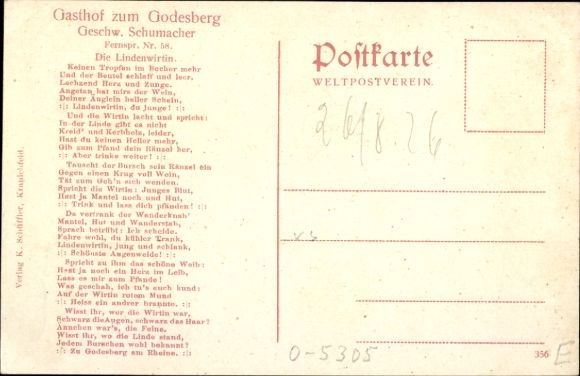 Gasthof zum Godesberg
Geschw. Schumacher
Fernspr. Nr. 58.
Die Lindenwirtin.
Keinen Tropfen im Becher mehr
Und der Beutel schlaff und leer,
Lechzend Herz und Zunge.
Angetan hat mirs der Wein,
Deiner Äuglein heller Schein,
:|: Lindenwirtin, du junge! :|:
Und die Wirtin lacht und spricht:
In der Linde gibt es nicht
Kreid' und Kerbholz, leider,
Hast du keinen Heller mehr,
Gib zum Pfand dein Ränzel her,
:|: Aber trinke weiter! :|:
Tauscht der Bursch sein Ränzel ein
Gegen einen Krug voll Wein,
Tät zum Geh'n sich wenden.
Spricht die Wirtin: Junges Blut,
Hast ja Mantel noch und Hut,
:|: Trink und lass dich pfänden! :|:
Da vertrank der Wanderknab'
Mantel, Hut und Wanderstab,
Sprach betrübt: Ich scheide.
Fahre wohl, du kühler Trank,
Lindenwirtin, jung und schlank,
:|: Schönste Augenweide! :|:
Spricht zu ihm das schöne Weib:
Hast ja noch ein Herz im Leib,
Lass es mir zum Pfande!
Was geschah, ich tu's euch kund:
Auf der Wirtin rotem Mund
:|: Heiss ein andrer brannte. :|:
Wisst ihr, wer die Wirtin war,
Schwarz die Augen, schwarz das Haar?
Ännchen war's, die Feine.
Wisst ihr, wo die Linde stand,
Jedem Burschen wohl bekannt?
:|: Zu Godesberg am Rheine. :|:
Verlag K. Schüffler, Kranichfeld.
Postkarte
WELTPOSTVEREIN.
26/8.26
356
0-5305
E